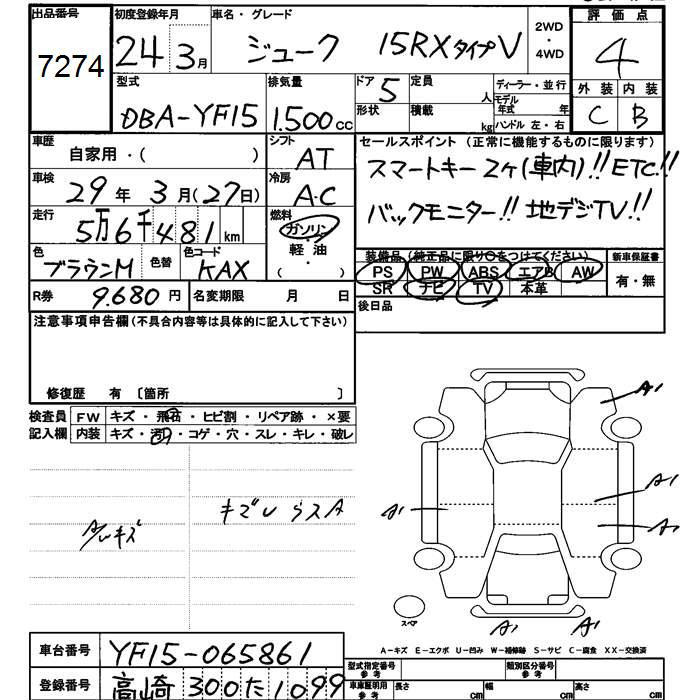 出品番号 初度登録年月 車名・グレード 2WD・4WD 評価点
7274 24年3月 ジューク 15RXタイプV 4
型式 排気量 ドア 5 定員 人 ディーラー・並行 外装 内装
DBA-YF15 1.500cc 形状 積載 kg モデル年式 年 ハンドル 左・右 C B
車歴 自家用・( ) シフト AT セールスポイント (正常に機能するものに限ります)
スマートキー2ヶ(車内)!! ETC!!
車検 29年3月(27日) 冷房 A・C
バックモニター!! 地デジTV!!
走行 5万6千481km 燃料 ガソリン・軽油・( )
色 ブラウンM 色替 色コード KAX
装備品 (純正品に限り○をつけてください) 新車保証書
PS PW ABS エアB AW 有・無
SR ナビ TV 本革
R券 9.680円 名変期限 月 日 後日品
注意事項申告欄 (不具合内容等は具体的に記入して下さい)
修復歴 有 〔箇所 〕
検査員 FW キズ・飛石・ヒビ割・リペア跡・×要
記入欄 内装 キズ・汚れ・コゲ・穴・スレ・キレ・破レ
A1
A1
A1
A1
キズU ラスA
キズ
スペア
A1 A1
A-キズ E-エクボ U-凹み W-補修跡 S-サビ C-腐食 XX-交換済
車台番号 YF15-065861
型式指定番号 参考 類別区分番号 参考
登録番号 高崎 300た1099
車庫証明用 参考 長さ cm 幅 cm 高さ cm